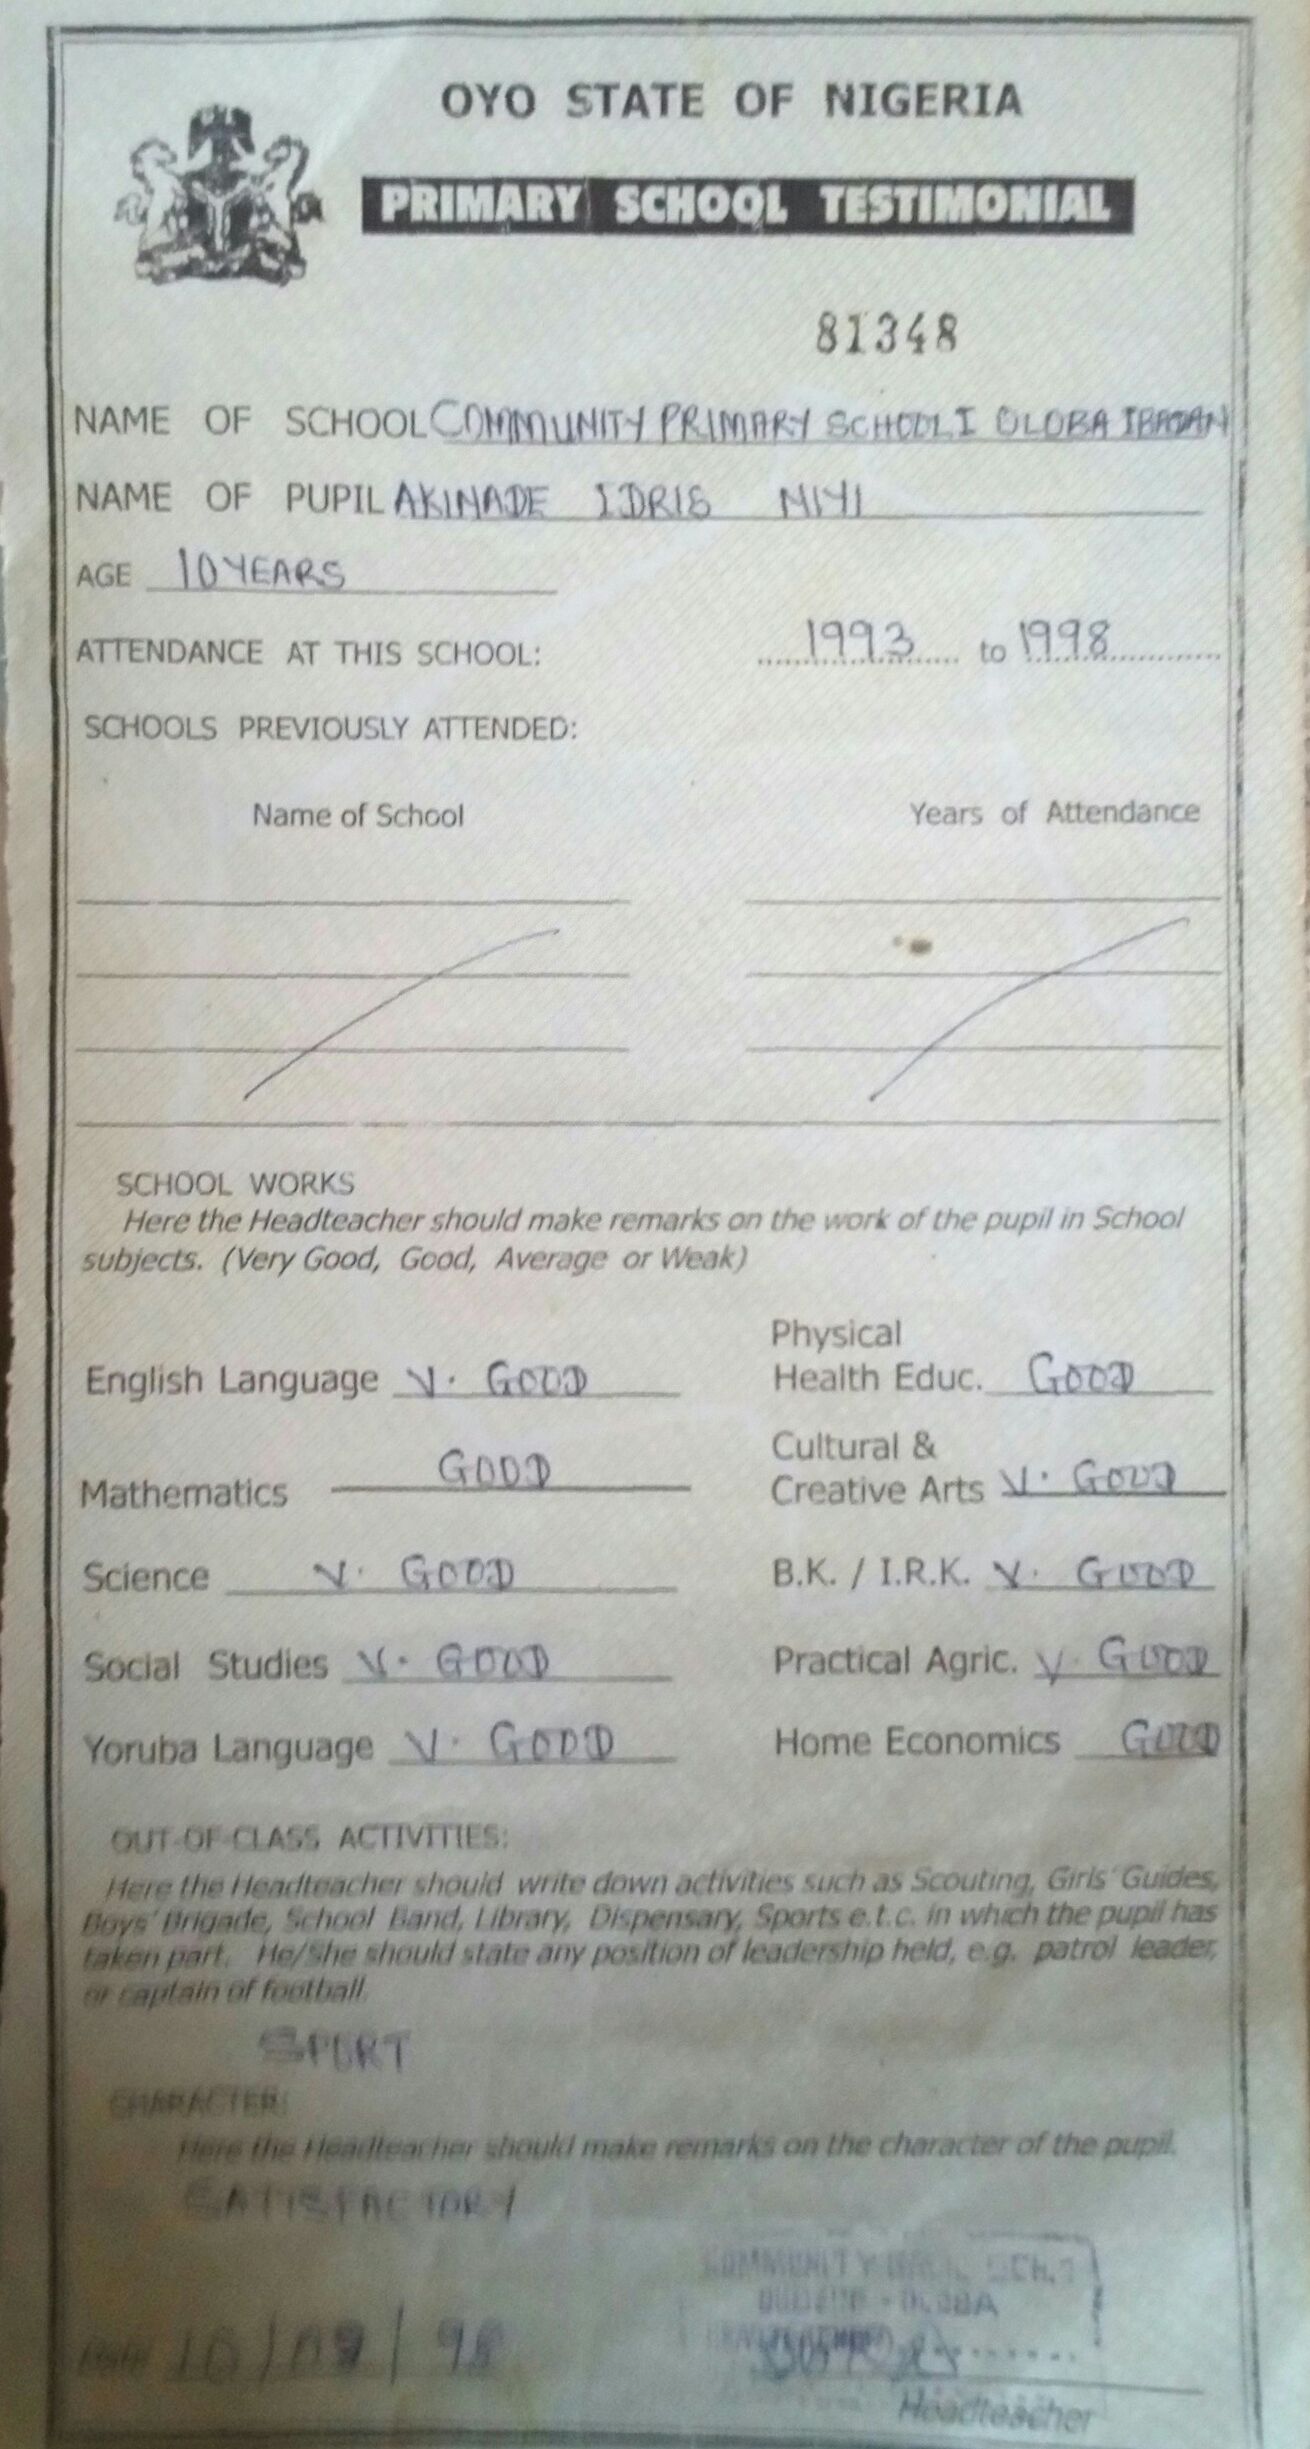 OYO STATE OF NIGERIA
PRIMARY SCHOOL TESTIMONIAL
81348
NAME OF SCHOOL COMMUNITY PRIMARY SCHOOL I OLOBA IBADAN
NAME OF PUPIL AKINADE IDRIS NIYI
AGE 10 YEARS
ATTENDANCE AT THIS SCHOOL: 1993 to 1998
SCHOOLS PREVIOUSLY ATTENDED:
Name of School Years of Attendance
SCHOOL WORKS
Here the Headteacher should make remarks on the work of the pupil in School
subjects. (Very Good, Good, Average or Weak)
English Language V. GOOD
Physical
Health Educ. GOOD
Mathematics GOOD
Cultural &
Creative Arts V. GOOD
Science V. GOOD
B.K. / I.R.K. V. GOOD
Social Studies V. GOOD
Practical Agric. V. GOOD
Yoruba Language V. GOOD
Home Economics GOOD
OUT-OF-CLASS ACTIVITIES:
Here the Headteacher should write down activities such as Scouting, Girls' Guides,
Boys' Brigade, School Band, Library, Dispensary, Sports e.t.c. in which the pupil has
taken part. He/She should state any position of leadership held, e.g. patrol leader,
or captain of football.
SPORT
CHARACTER:
Here the Headteacher should make remarks on the character of the pupil.
SATISFACTORY
COMMUNITY SCH. 1
OLOBA
10/09/98
Headteacher